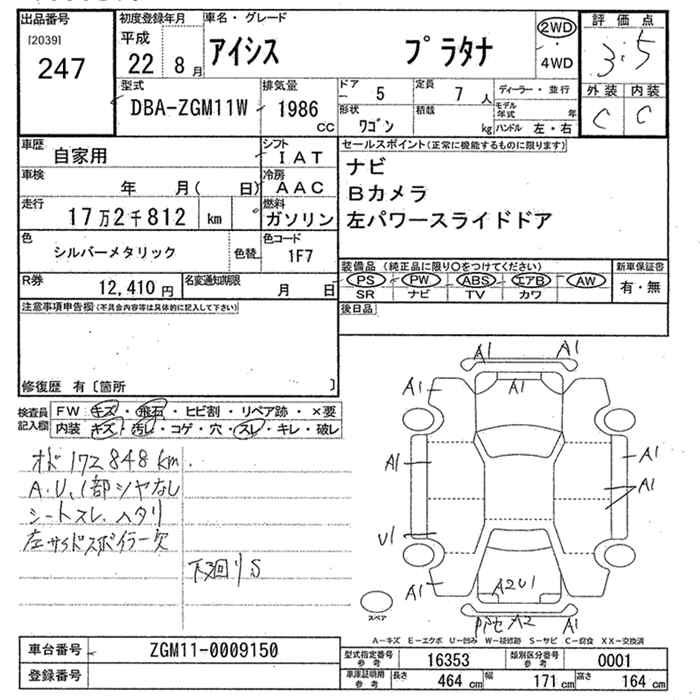 出品番号
[2039]
247
初度登録年月
平成
22 8月
車名・グレード
アイシス プラタナ
2WD
・
4WD
評価点
3.5
外装 内装
C C
型式
DBA-ZGM11W
排気量
1986
cc
ドア
5
定員
7 人
ディーラー・並行
モデル年式 年
形状
ワゴン
積載
kg
ハンドル 左・右
車歴
自家用
シフト
IAT
車検
年 月( 日)
冷房
AAC
走行
17万2千812 km
燃料
ガソリン
色
シルバーメタリック
色替
色コード
1F7
R券
12,410円
名変通知期限
月 日
セールスポイント(正常に機能するものに限ります)
ナビ
Bカメラ
左パワースライドドア
装備品 (純正品に限り○をつけてください)
PS PW ABS エアB AW
SR ナビ TV カワ
新車保証書
有・無
後日品
注意事項申告欄(不具合内容等は具体的に記入して下さい)
修復歴 有〔箇所 〕
検査員記入欄
FW キズ・飛石・ヒビ割・リペア跡・×要
内装 キズ・汚レ・コゲ・穴・スレ・キレ・破レ
オド 172848km.
A.U、1部シヤなし
シートスレ、ヘタリ
左サイドスポイラー欠
下廻りS
A1 A1
A1 A1
A1 A1
A1
U1
A1 A2U1
A2 A1
スペア
A-キズ E-エクボ U-凹み W-補修跡 S-サビ C-腐食 XX-交換済
車台番号
ZGM11-0009150
登録番号
型式指定番号
参考
16353
類別区分番号
参考
0001
車庫証明用
参考
長さ
464 cm
幅
171 cm
高さ
164 cm